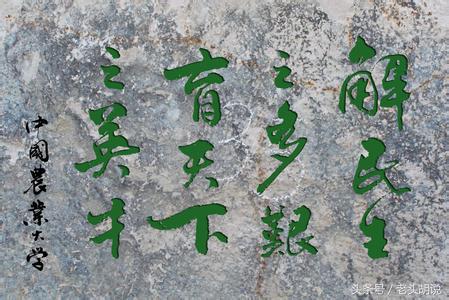 解民生
之多艱
育天下
之英才
中國農業大学
头条号／老头明说